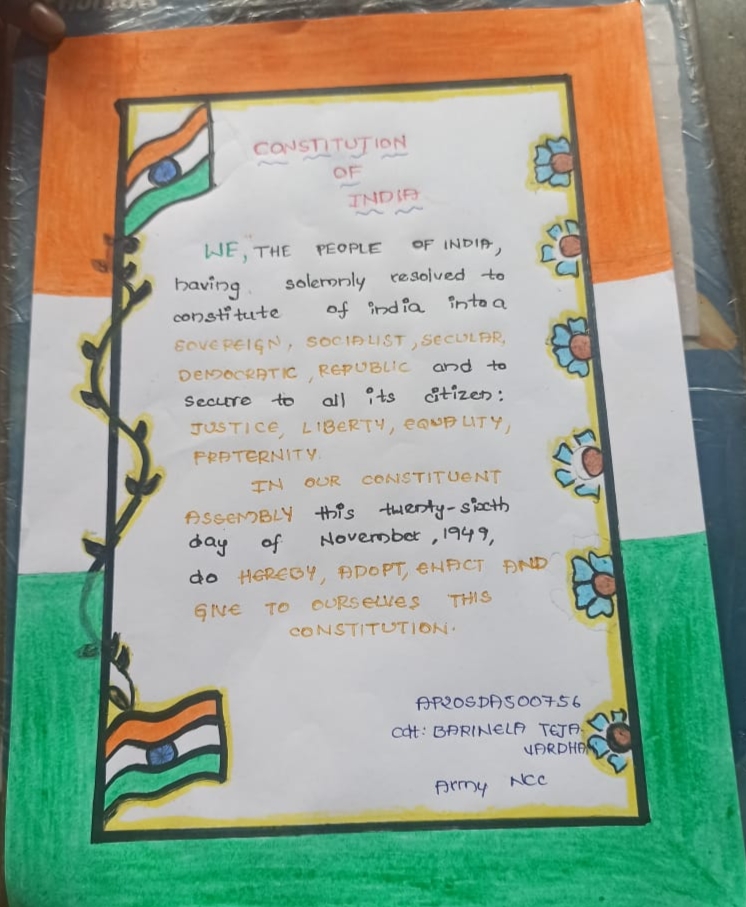 CONSTITUTION
OF
INDIA
WE, THE PEOPLE OF INDIA,
having solemnly resolved to
constitute of india into a
SOVEREIGN, SOCIALIST, SECULAR,
DEMOCRATIC, REPUBLIC and to
secure to all its citizen:
JUSTICE, LIBERTY, EQUALITY,
FRATERNITY.
IN OUR CONSTITUENT
ASSEMBLY this twenty-sixth
day of November, 1949,
do HEREBY, ADOPT, ENACT AND
GIVE TO OURSELVES THIS
CONSTITUTION.
AP20SDA500756
Cdt: BARINELA TEJA
VARDHA
Army NCC